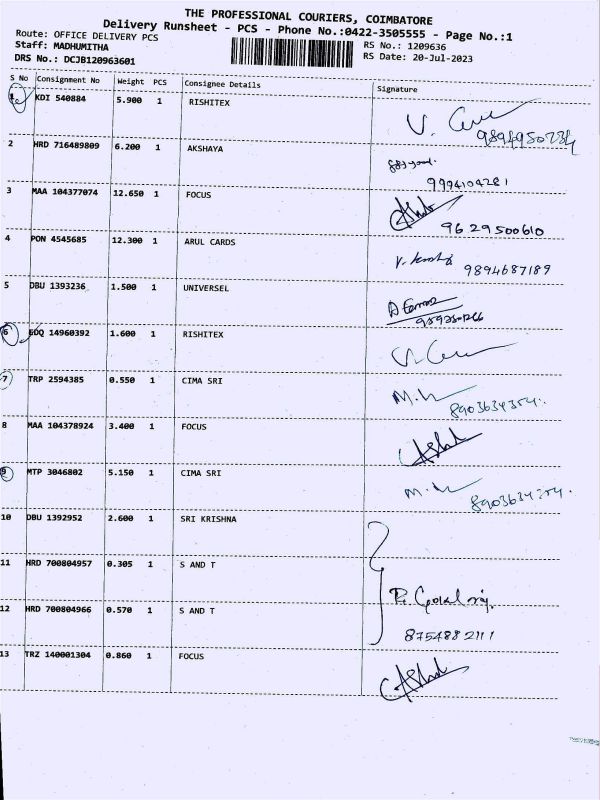 THE PROFESSIONAL COURIERS, COIMBATORE
Delivery Runsheet - PCS - Phone No.:0422-3505555 - Page No.:1
Route: OFFICE DELIVERY PCS
Staff: MADHUMITHA
RS No.: 1209636
DRS No.: DCJB120963601
RS Date: 20-Jul-2023
S No Consignment No Weight PCS Consignee Details Signature
1 KDI 540884 5.900 1 RISHITEX
2 HRD 716489809 6.200 1 AKSHAYA
9994104281
3 MAA 104377074 12.650 1 FOCUS
9629500610
4 PON 4545685 12.300 1 ARUL CARDS
9894687189
5 DBU 1393236 1.500 1 UNIVERSEL
6 EDQ 14960392 1.600 1 RISHITEX
7 TRP 2594385 0.550 1 CIMA SRI
8 MAA 104378924 3.400 1 FOCUS
9 MTP 3046802 5.150 1 CIMA SRI
10 DBU 1392952 2.600 1 SRI KRISHNA
11 HRD 700804957 0.305 1 S AND T
12 HRD 700804966 0.570 1 S AND T
8754882111
13 TRZ 140001304 0.860 1 FOCUS